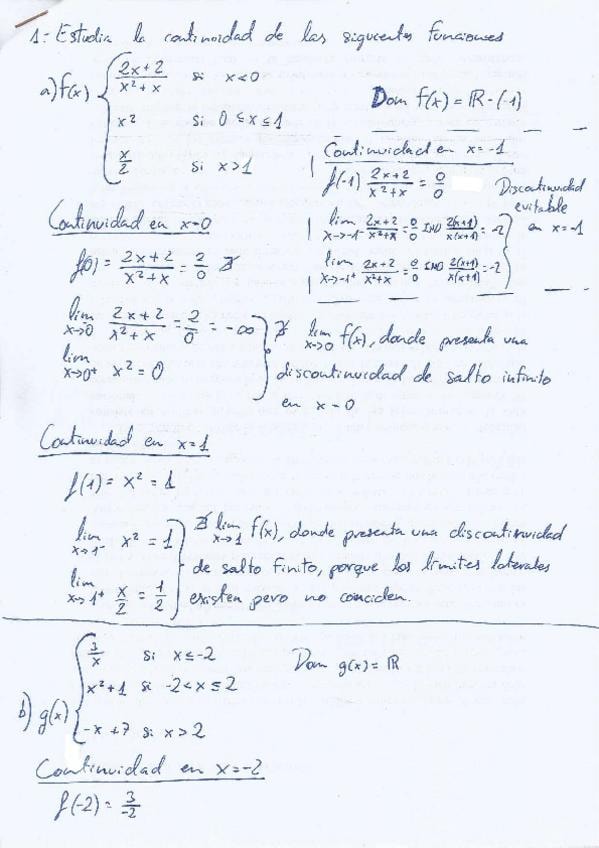 1.- Estudia la continuidad de las siguientes funciones
a) f(x) { (2x+2)/(x²+x) si x<0
x² si 0 ≤ x ≤ 1
x/2 si x>1
Dom f(x) = ℝ - (-1)
Continuidad en x=-1
f(-1) (2x+2)/(x²+x) = 0/0
lim x→-1⁻ (2x+2)/(x²+x) = 0/0 IND 2(x+1)/x(x+1) = -2
lim x→-1⁺ (2x+2)/(x²+x) = 0/0 IND 2(x+1)/x(x+1) = -2
Discontinuidad
evitable
en x=-1
Continuidad en x=0
f(0) = (2x+2)/(x²+x) = 2/0 ∄
lim x→0 (2x+2)/(x²+x) = 2/0 = -∞
lim x→0⁺ x² = 0
∄ lim x→0 f(x), donde presenta una
discontinuidad de salto infinito
en x=0
Continuidad en x=1
f(1) = x² = 1
lim x→1⁻ x² = 1
lim x→1⁺ x/2 = 1/2
∄ lim x→1 f(x), donde presenta una discontinuidad
de salto finito, porque los límites laterales
existen pero no coinciden.
b) g(x) { 3/x si x≤-2
x²+1 si -2<x≤2
-x+7 si x>2
Dom g(x) = ℝ
Continuidad en x=-2
f(-2) = 3/-2